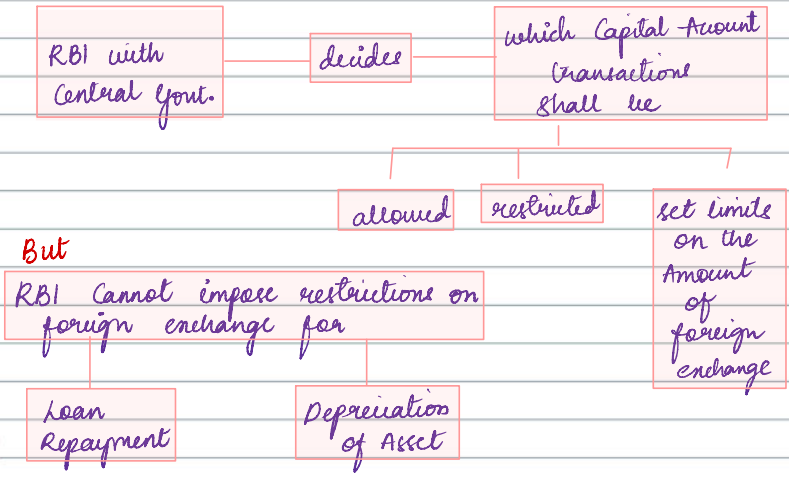 RBI with
Central Govt.
decides
which Capital Account
transactions
shall be
allowed
restricted
set limits
on the
Amount
of
foreign
exchange
But
RBI Cannot impose restrictions on
foreign exchange for
Loan
Repayment
Depreciation
of Asset